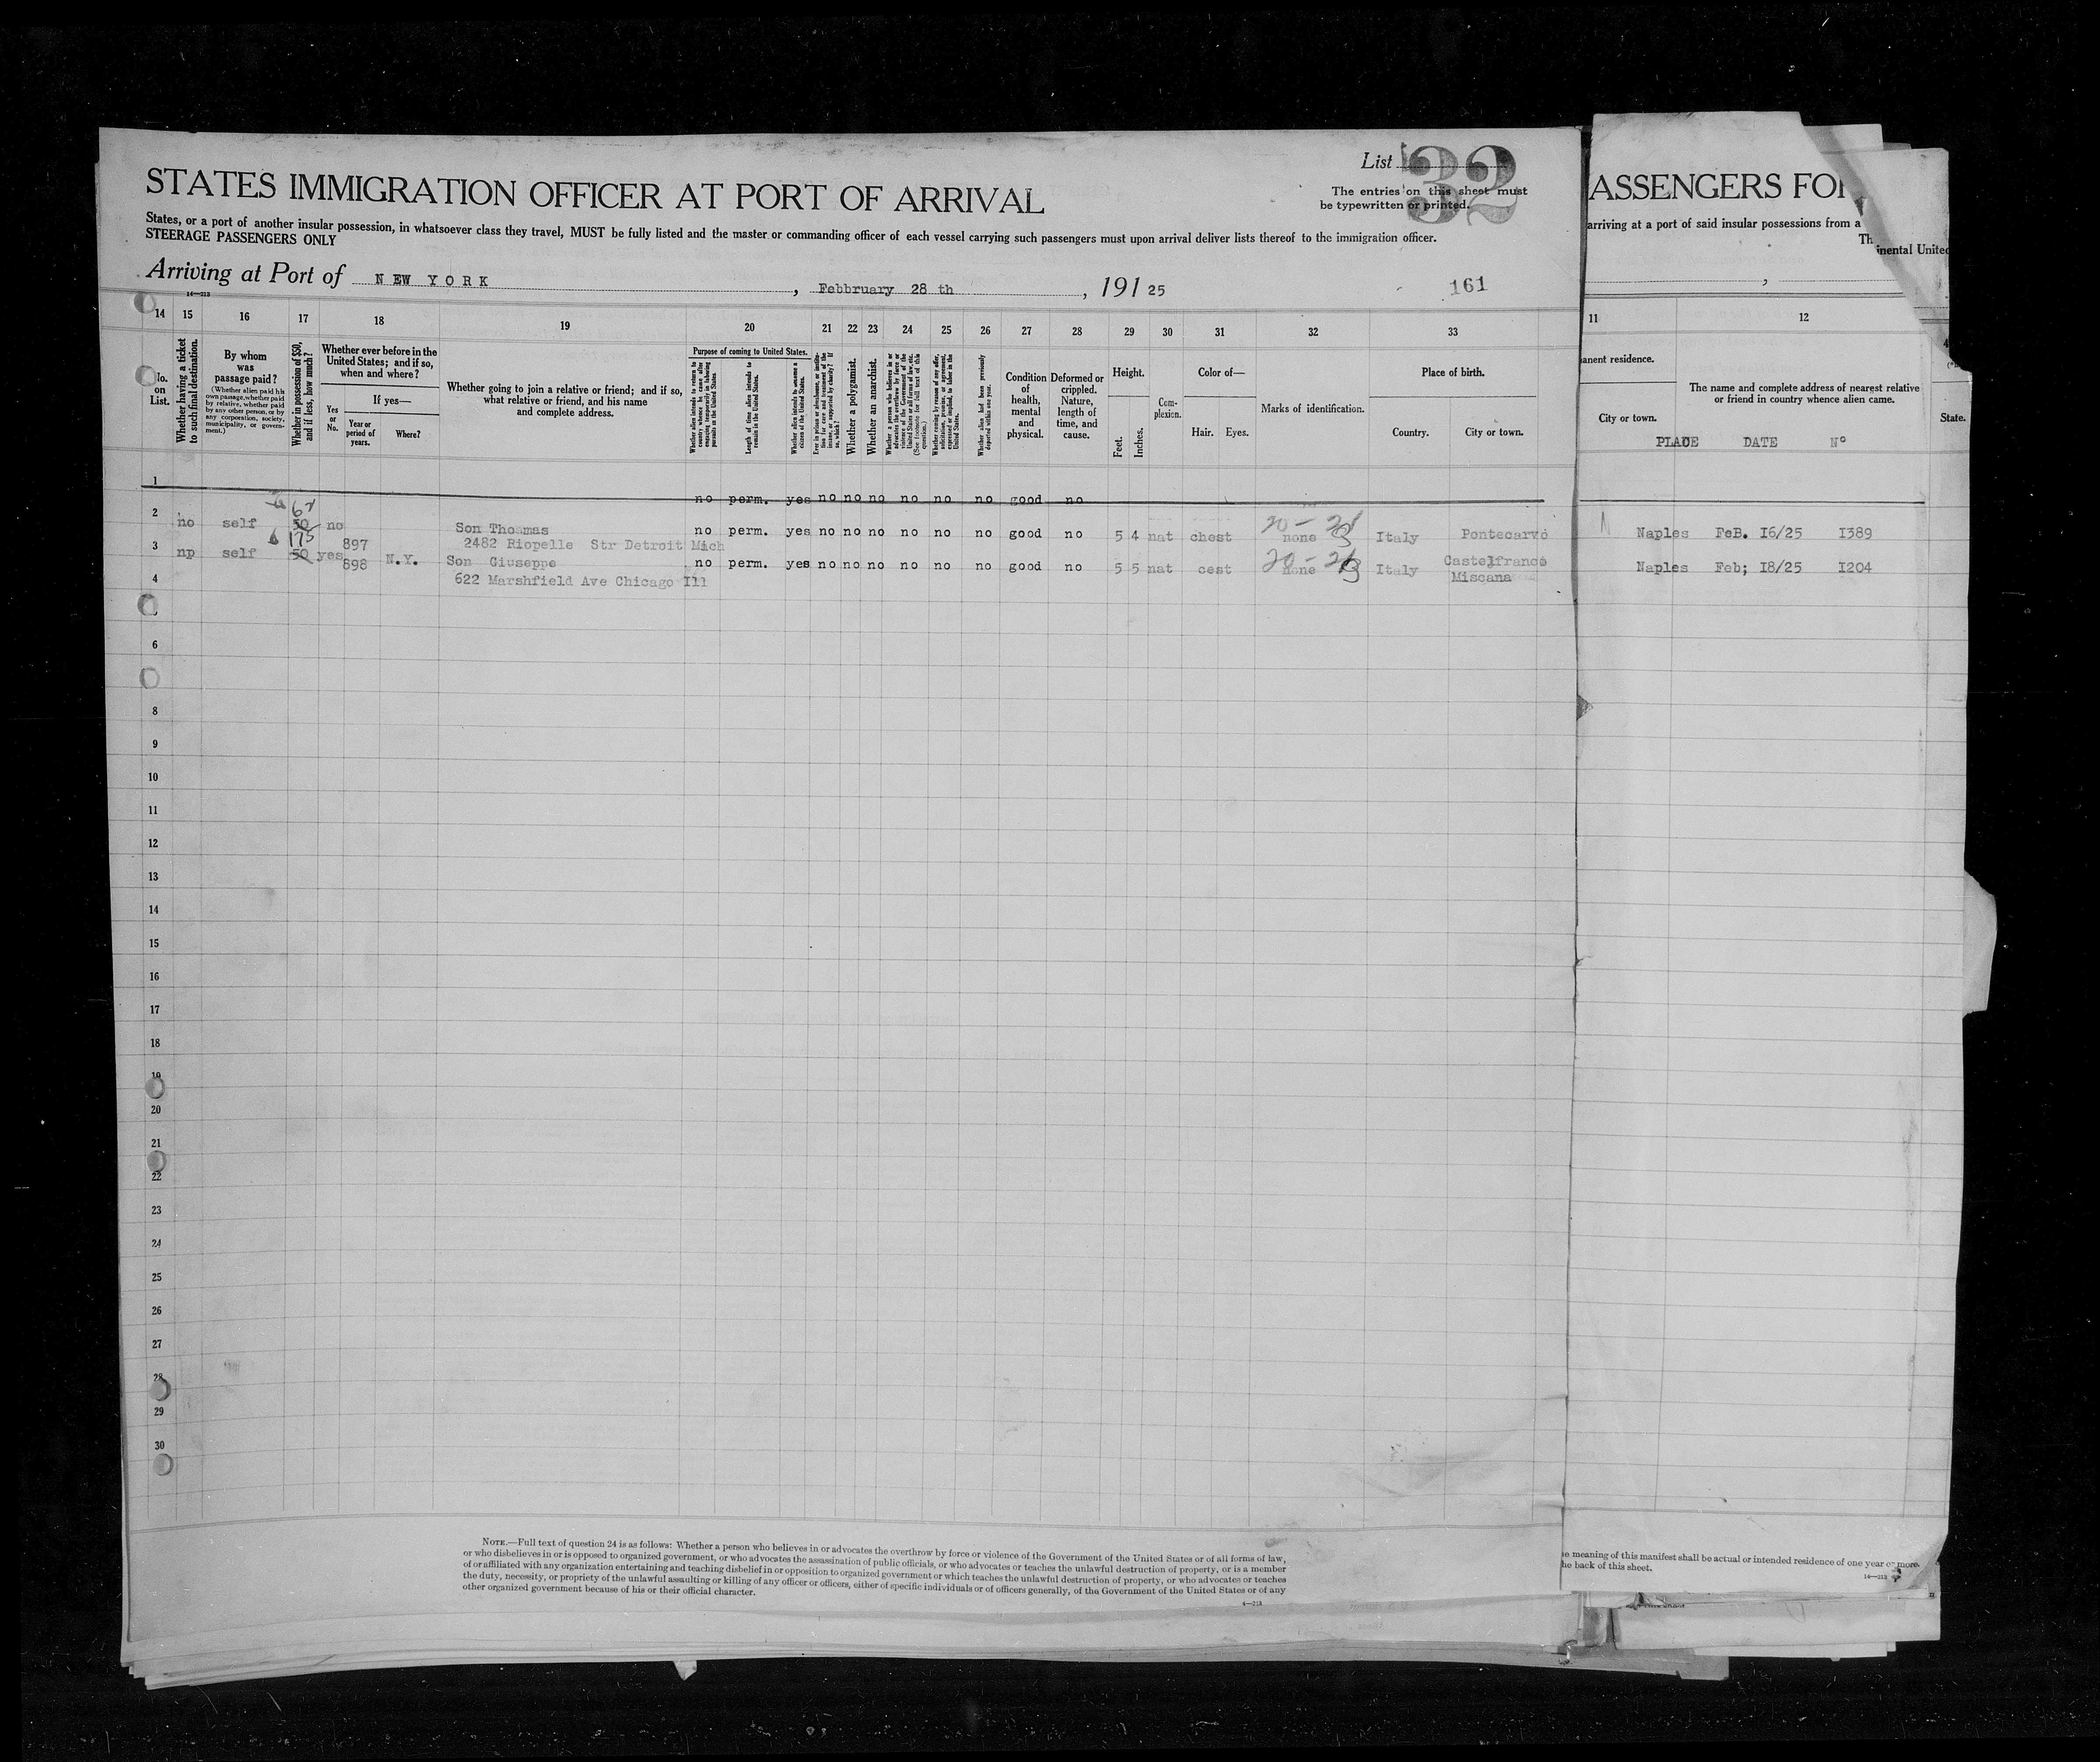 List 32
STATES IMMIGRATION OFFICER AT PORT OF ARRIVAL
The entries on this sheet must
be typewritten or printed.
States, or a port of another insular possession, in whatsoever class they travel, MUST be fully listed and the master or commanding officer of each vessel carrying such passengers must upon arrival deliver lists thereof to the immigration officer.
STEERAGE PASSENGERS ONLY
Arriving at Port of NEW YORK, Febbruary 28 th, 191 25
161
14—213
14 15 16 17 18 19 20 21 22 23 24 25 26 27 28 29 30 31 32 33
No. on List.
Whether having a ticket to such final destination.
By whom was passage paid?
(Whether alien paid his own passage, whether paid by relative, whether paid by any other person, or by any corporation, society, municipality, or government.)
Whether in possession of $50, and if less, how much?
Whether ever before in the United States; and if so, when and where?
Yes or No.
If yes—
Year or period of years.
Where?
Whether going to join a relative or friend; and if so, what relative or friend, and his name and complete address.
Purpose of coming to United States.
Whether alien intends to return to country whence he came after engaging temporarily in laboring pursuits in the United States.
Length of time alien intends to remain in the United States.
Whether alien intends to become a citizen of the United States.
Whether a polygamist.
Whether an anarchist.
Whether alien had been previously deported within one year.
Condition of health, mental and physical.
Deformed or crippled. Nature, length of time, and cause.
Height.
Feet.
Inches.
Complexion.
Color of—
Hair. Eyes.
Marks of identification.
Place of birth.
Country. City or town.
1
no perm. yes no no no no no no good no
2 no self 67 50 no Son Thomas no perm. yes no no no no no no good no 5 4 nat chest none Italy Pontecarvo
2482 Riopelle Str Detroit Mich
3 np self 175 50 yes 897 898 N.Y. Son Giuseppe no perm. yes no no no no no no good no 5 5 nat cest none Italy Castelfranco
Miscana
622 Marshfield Ave Chicago Ill
4
6
8
9
10
11
12
13
14
15
16
17
18
19
20
21
22
23
24
25
26
27
28
29
30
NOTE.—Full text of question 24 is as follows: Whether a person who believes in or advocates the overthrow by force or violence of the Government of the United States or of all forms of law,
or who disbelieves in or is opposed to organized government, or who advocates the assassination of public officials, or who advocates or teaches the unlawful destruction of property, or is a member
of or affiliated with any organization entertaining and teaching disbelief in or opposition to organized government or which teaches the unlawful destruction of property, or who advocates or teaches
the duty, necessity, or propriety of the unlawful assaulting or killing of any officer or officers, either of specific individuals or of officers generally, of the Government of the United States or of any
other organized government because of his or their official character.
4—213
ASSENGERS FOR
arriving at a port of said insular possessions from a
Th
inental United
11 12
anent residence.
City or town.
The name and complete address of nearest relative or friend in country whence alien came.
State.
PLACE DATE Nº
Naples FeB. I6/25 I389
Naples Feb; I8/25 I204
e meaning of this manifest shall be actual or intended residence of one year or more.
he back of this sheet.
14—213